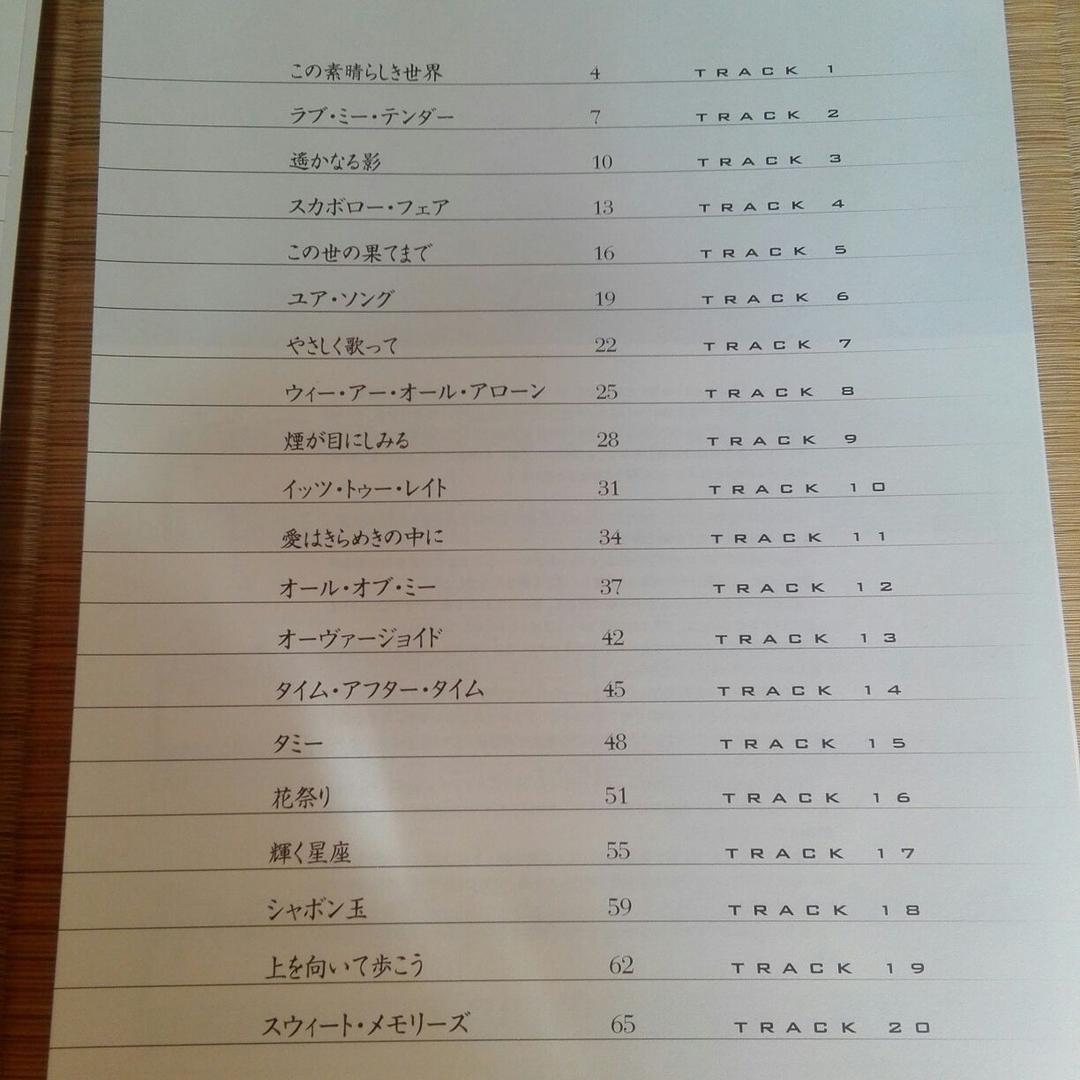 この素晴らしき世界 4 TRACK 1
ラブ・ミー・テンダー 7 TRACK 2
遙かなる影 10 TRACK 3
スカボロー・フェア 13 TRACK 4
この世の果てまで 16 TRACK 5
ユア・ソング 19 TRACK 6
やさしく歌って 22 TRACK 7
ウィー・アー・オール・アローン 25 TRACK 8
煙が目にしみる 28 TRACK 9
イッツ・トゥー・レイト 31 TRACK 10
愛はきらめきの中に 34 TRACK 11
オール・オブ・ミー 37 TRACK 12
オーヴァージョイド 42 TRACK 13
タイム・アフター・タイム 45 TRACK 14
タミー 48 TRACK 15
花祭り 51 TRACK 16
輝く星座 55 TRACK 17
シャボン玉 59 TRACK 18
上を向いて歩こう 62 TRACK 19
スウィート・メモリーズ 65 TRACK 20